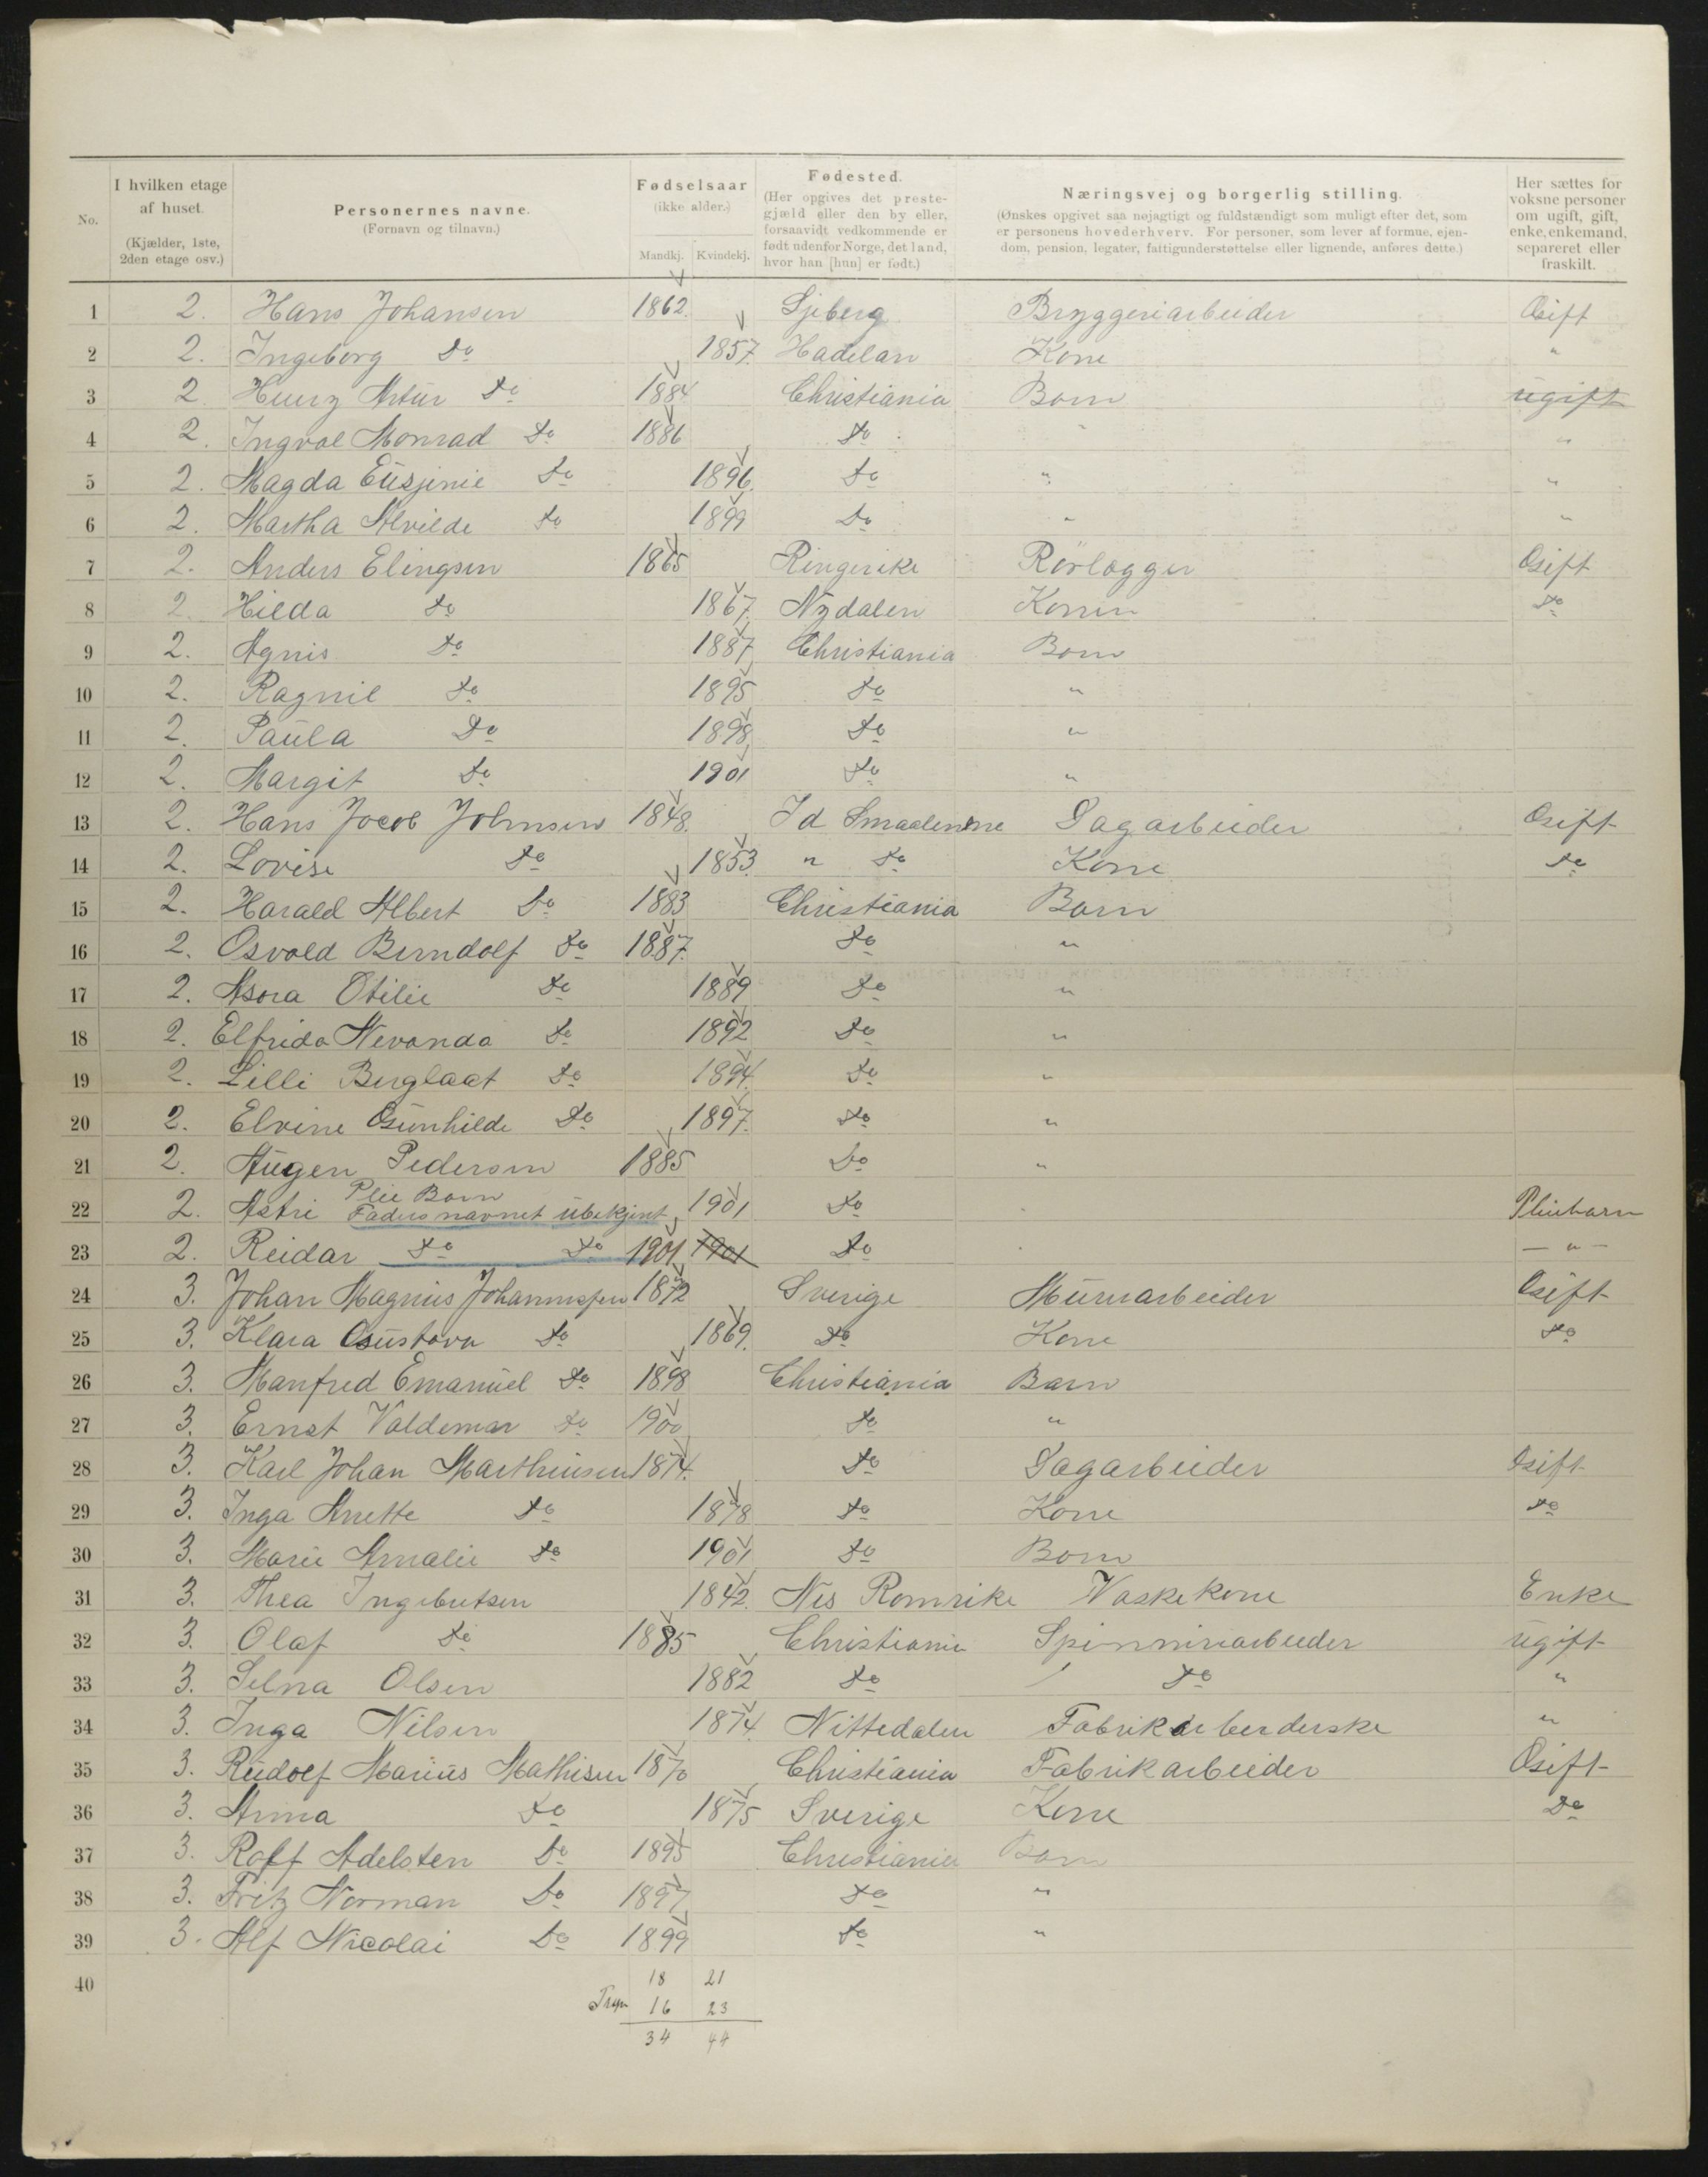 No.
I hvilken etage af huset. (Kjælder, 1ste, 2den etage osv.)
Personernes navne. (Fornavn og tilnavn.)
Fødselsaar (ikke alder.) Mandkj. Kvindekj.
Fødested. (Her opgives det prestegjæld eller den by eller, forsaavidt vedkommende er født udenfor Norge, det land, hvor han [hun] er født.)
Næringsvej og borgerlig stilling. (Ønskes opgivet saa nøjagtigt og fuldstændigt som muligt efter det, som er personens hovederhverv. For personer, som lever af formue, ejendom, pension, legater, fattigunderstøttelse eller lignende, anføres dette.)
Her sættes for voksne personer om ugift, gift, enke, enkemand, separeret eller fraskilt.
1 2. Hans Johansen 1862. Sjiberg Bryggeriarbeider Gift
2 2. Ingeborg Do 1857. Hadelan Kone "
3 2 Henry Artur Do 1884 Christiania Barn ugift
4 2. Ingval Monrad Do 1886 Do " "
5 2. Magda Eusjinie Do 1896. Do " "
6 2. Martha Alvilde Do 1899 Do " "
7 2. Anders Elingsen 1865 Ringerike Rörlægger Gift
8 2 Hilda Do 1867. Nydalen Konen Do
9 2. Agnis Do 1887 Christiania Barn
10 2. Ragnil Do 1895 Do "
11 2. Paula Do 1898 Do "
12 2. Margit Do 1901 Do "
13 2. Hans Jocob Johnsen 1848. Id Smaalenene Sagarbeider Gift
14 2. Lovise Do 1853. " Do Kone Do
15 2. Harald Albert Do 1883 Christiania Barn
16 2. Osvald Berndolf Do 1887. Do "
17 2. Otilie Do 1889 Do "
18 2. Elfrida Nevanda Do 1892 Do "
19 2. Lilli Do 1894. Do "
20 2. Elvine Gunhilde Do 1897. Do "
21 2. Augen Pedersen 1885 Do "
22 2. Astri Plie Barn Faders navnet ubekjent 1901 Do Pleiebarn
23 2. Reidar Do Do 1901 1901 Do — " —
24 3. Johan Magnus Johannesen 1872 Sverige Murarbeider Gift
25 3. Klara Gustava Do 1869. Do Kone Do
26 3. Manfred Emanuel Do 1898 Christiania Barn
27 3. Ernst Valdemar Do 1900 Do "
28 3. Karl Johan Marthinsen 1874. Do Sagarbeider Gift
29 3. Inga Anette Do 1878 Do Kone Do
30 3. Marie Amalie Do 1901 Do Barn
31 3. Thea Ingebretsen 1842. Nes Romrike Vaskekone Enke
32 3. Olaf Do 1885 Christiania Spinneriarbeider ugift
33 3. Selma Olsen 1882 Do Do "
34 3. Inga Nilsen 1874. Nittedalen Fabrikarbeiderske "
35 3. Rudolf Marius Mathisen 1870 Christiania Fabrikarbeider Gift
36 3. Anna Do 1875 Sverige Kone Do
37 3. Rolf Adelsten Do 1895 Christiania Barn
38 3. Fritz Norman Do 1897 Do "
39 3. Alf Nicolai Do 1899 Do "
40
18 21
16 23
34 44